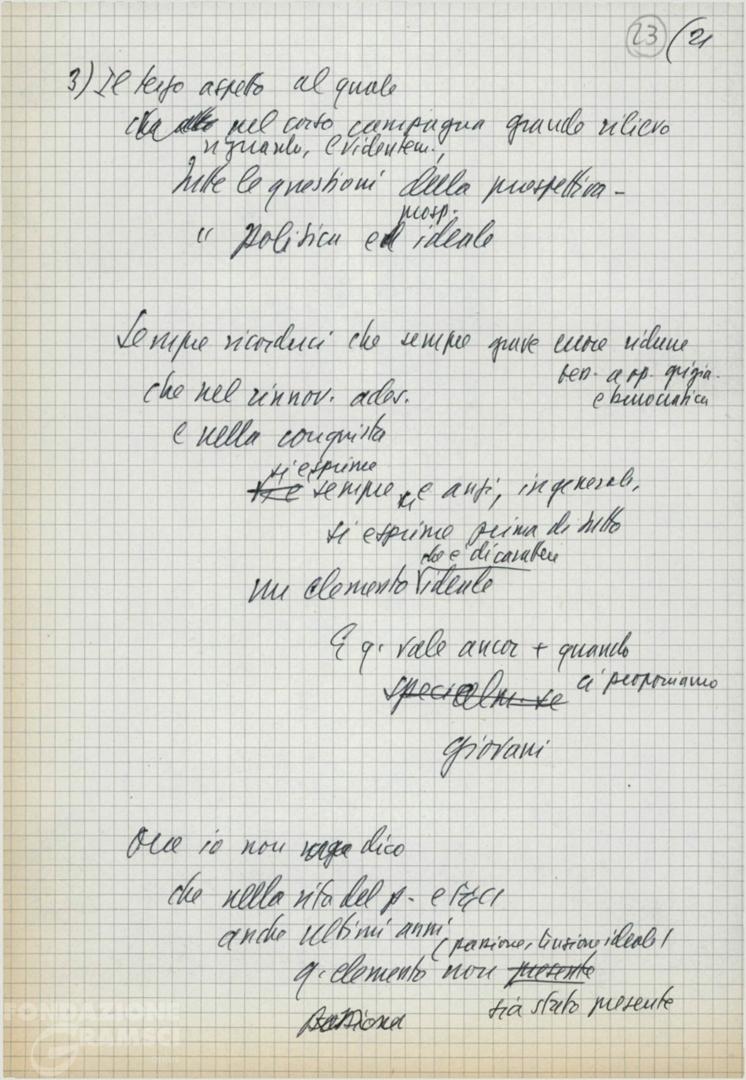 23 (21
3) Il terzo aspetto al quale
nel corso campagna grande rilievo
riguarda, evidentem.,
tutte le questioni della prospettiva -
prosp.
" politica ed ideale
Sempre ricordarci che sempre grave errore ridurre
tess. a op. grigia
e burocratica
che nel rinnov. ades.
e nella conquista
si esprime
sempre, e anzi, in generale,
si esprime prima di tutto
che è di carattere
un elemento ideale
E q. vale ancor + quando
specialm. se ci proponiamo
giovani
Ora io non dico
che nella vita del p. e FGCI
anche ultimi anni
(passione, tensione ideale)
q. elemento non presente
sia stato presente
passione
FONDAZIONE
GRAMSCI